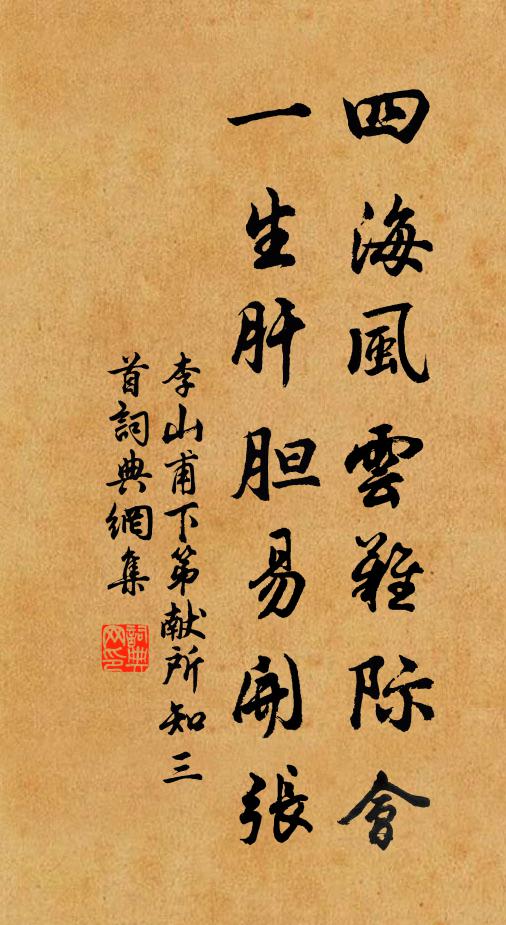 四海風雲難际會
一生肝胆易開張
李山甫下第献所知三
首詞典網集
詞典网印